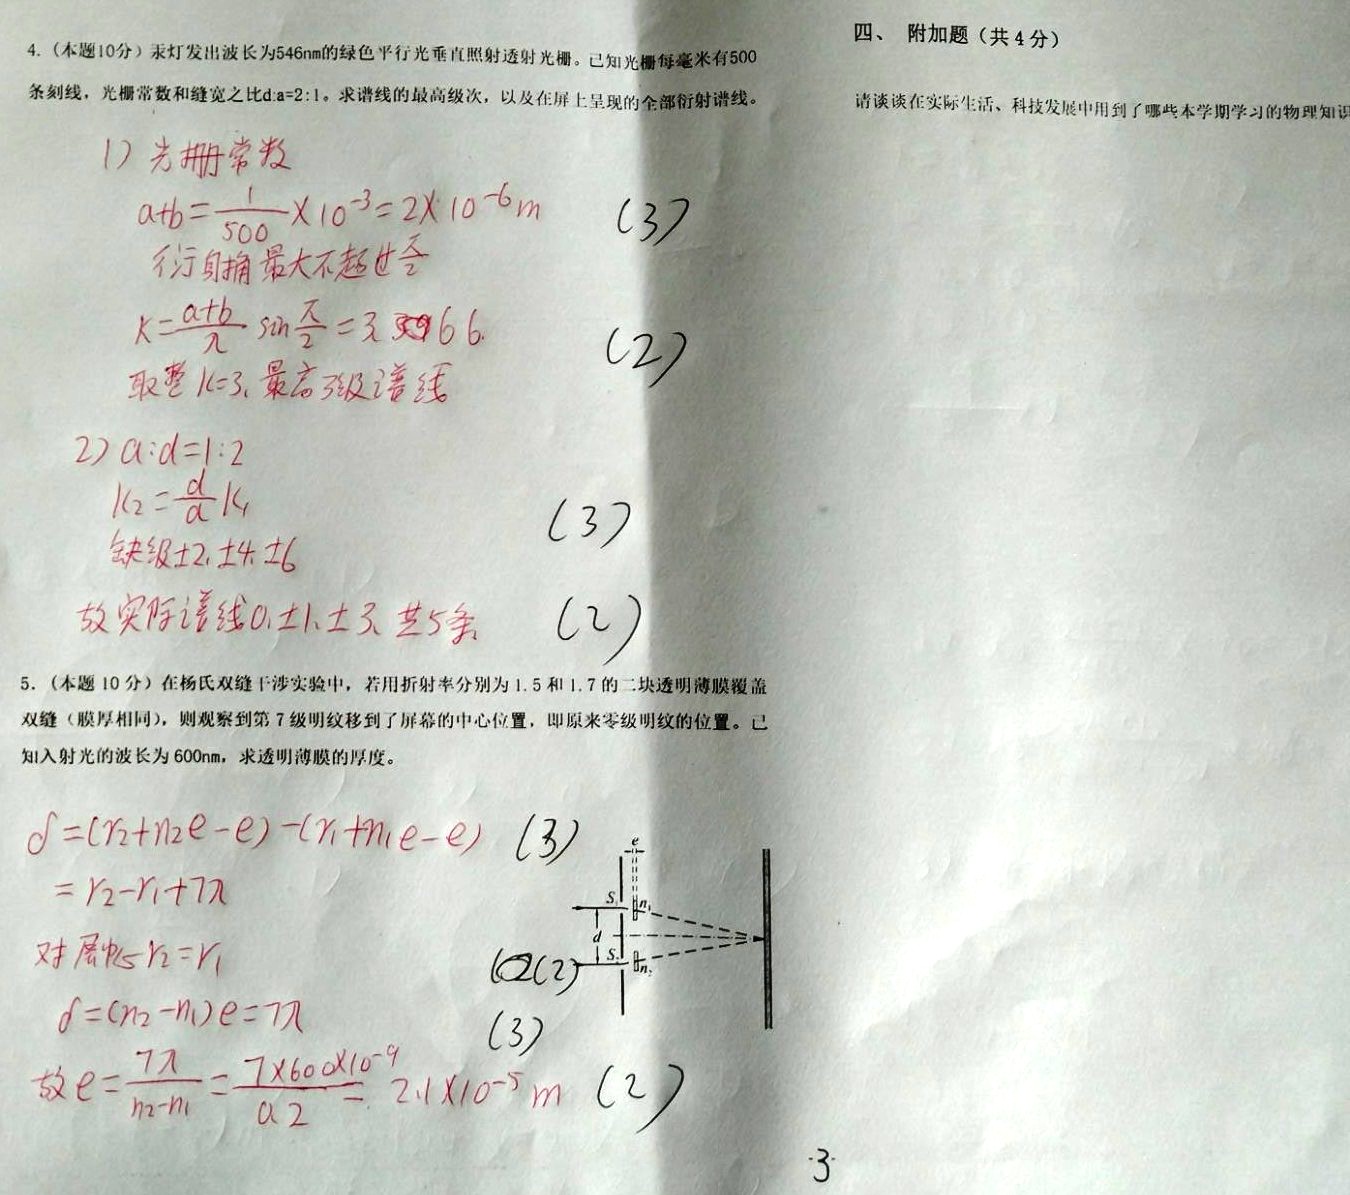 4. (本题10分) 汞灯发出波长为546nm的绿色平行光垂直照射透射光栅。已知光栅每毫米有500
条刻线，光栅常数和缝宽之比d:a=2:1。求谱线的最高级次，以及在屏上呈现的全部衍射谱线。
1) 光栅常数
a+b=1/500×10^-3=2×10^-6m (3)
衍射角最大不超过π/2
K=(a+b)/λ sin π/2=3.66 (2)
取整K=3, 最高3级谱线
2) a:d=1:2
K2=d/a K1
缺级±2,±4,±6 (3)
故实际谱线0,±1,±3, 共5条 (2)
5. (本题 10 分) 在杨氏双缝干涉实验中，若用折射率分别为 1.5 和 1.7 的二块透明薄膜覆盖
双缝（膜厚相同），则观察到第 7 级明纹移到了屏幕的中心位置，即原来零级明纹的位置。已
知入射光的波长为 600nm，求透明薄膜的厚度。
δ=(r2+n2e-e)-(r1+n1e-e) (3)
=r2-r1+7λ
对屏中心r2=r1 (2)
δ=(n2-n1)e=7λ (3)
故e=7λ/(n2-n1)=7×600×10^-9/0.2=2.1×10^-5m (2)
e
S1 n1
d
S2 n2
四、 附加题（共 4 分）
请谈谈在实际生活、科技发展中用到了哪些本学期学习的物理知识
·3·